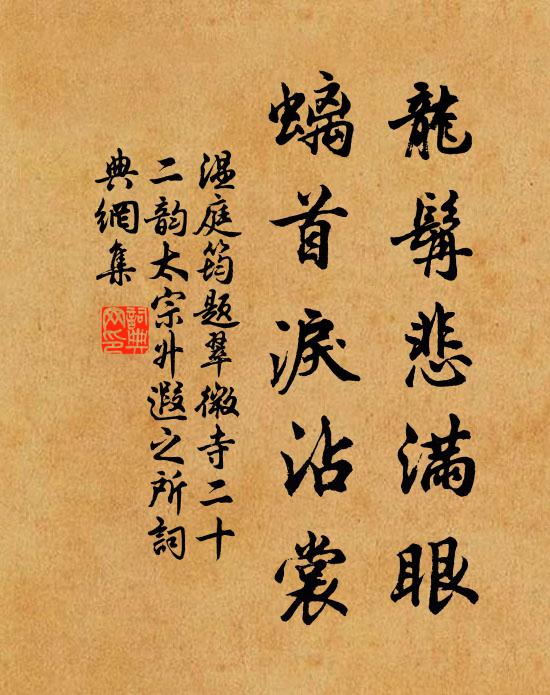 龍髯悲滿眼
螭首淚沾裳
溫庭筠題翠微寺二十
二韵太宗升遐之所詞
典網集
詞典
網印